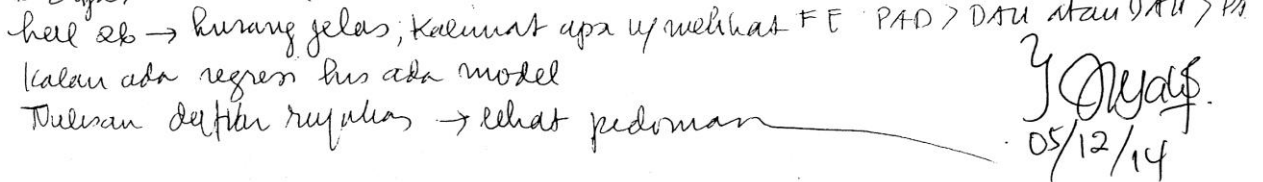 hal 26 → kurang jelas; kalimat apa u/ melihat FE PAD > DAU atau DAU > PA
Kalau ada regresi hrs ada model
Tulisan daftar rujukan → lihat pedoman
05/12/14